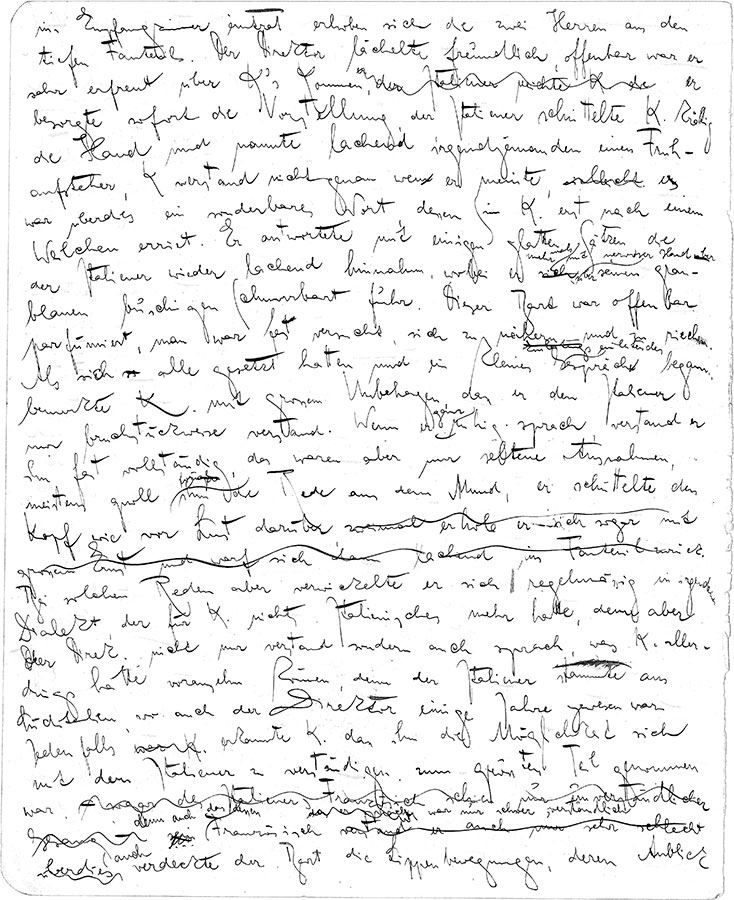 ins Empfangszimmer eintrat erhoben sich die zwei Herren aus den
tiefen Fauteuils. Der Direktor lächelte freundlich, offenbar war er
sehr erfreut über K's Kommen, der Italiener K er
besorgte sofort die Vorstellung der Italiener schüttelte K. kräftig
die Hand und nannte lachend irgendjemanden einen Früh-
aufsteher, K verstand nicht genau wen er meinte, es
war überdies ein sonderbares Wort, dessen Sinn K. erst nach einem
Weilchen erriet. Er antwortete mit einigen glatten Sätzen die
mehrmals mit nervöser Hand über
der Italiener wieder lachend hinnahm, wobei er seinen grau-
blauen buschigen Schnurrbart fuhr. Dieser Bart war offenbar
parfümiert, man war fast versucht, sich zu nähern und zu riechen.
einleitendes
Als sich alle gesetzt hatten und ein kleines Gespräch begann,
bemerkte K. mit grossem Unbehagen, das er den Italiener
nur bruchstückweise verstand. Wenn er ganz ruhig sprach verstand er
ihn fast vollständig, das waren aber nur seltene Ausnahmen,
meistens quoll ihm die Rede aus dem Mund, er schüttelte den
Kopf wie vor Lust darüber erholte er sich sogar mit
grossem Ernst und warf sich dann lachend ins Fauteuil zurück.
Bei solchen Reden aber verwickelte er sich regelmässig in irgendeinen
Dialekt, der für K. nichts Italienisches mehr hatte, denn aber
der Direk. nicht nur verstand sondern auch sprach, was K. aller-
dings hätte voraussehn können, denn der Italiener stammte aus
Süditalien, wo auch der Direktor einige Jahre gewesen war.
Jedenfalls erkannte K. das ihm die Möglichkeit sich
mit dem Italiener zu verständigen zum grössten Teil genommen
war. des Italieners Französisch schien nur verständlicher
denn auch dessen war nur schwer verständlich
Französisch verstand er auch nur sehr schlecht
überdies auch verdeckte der Bart die Lippenbewegungen, deren Anblick